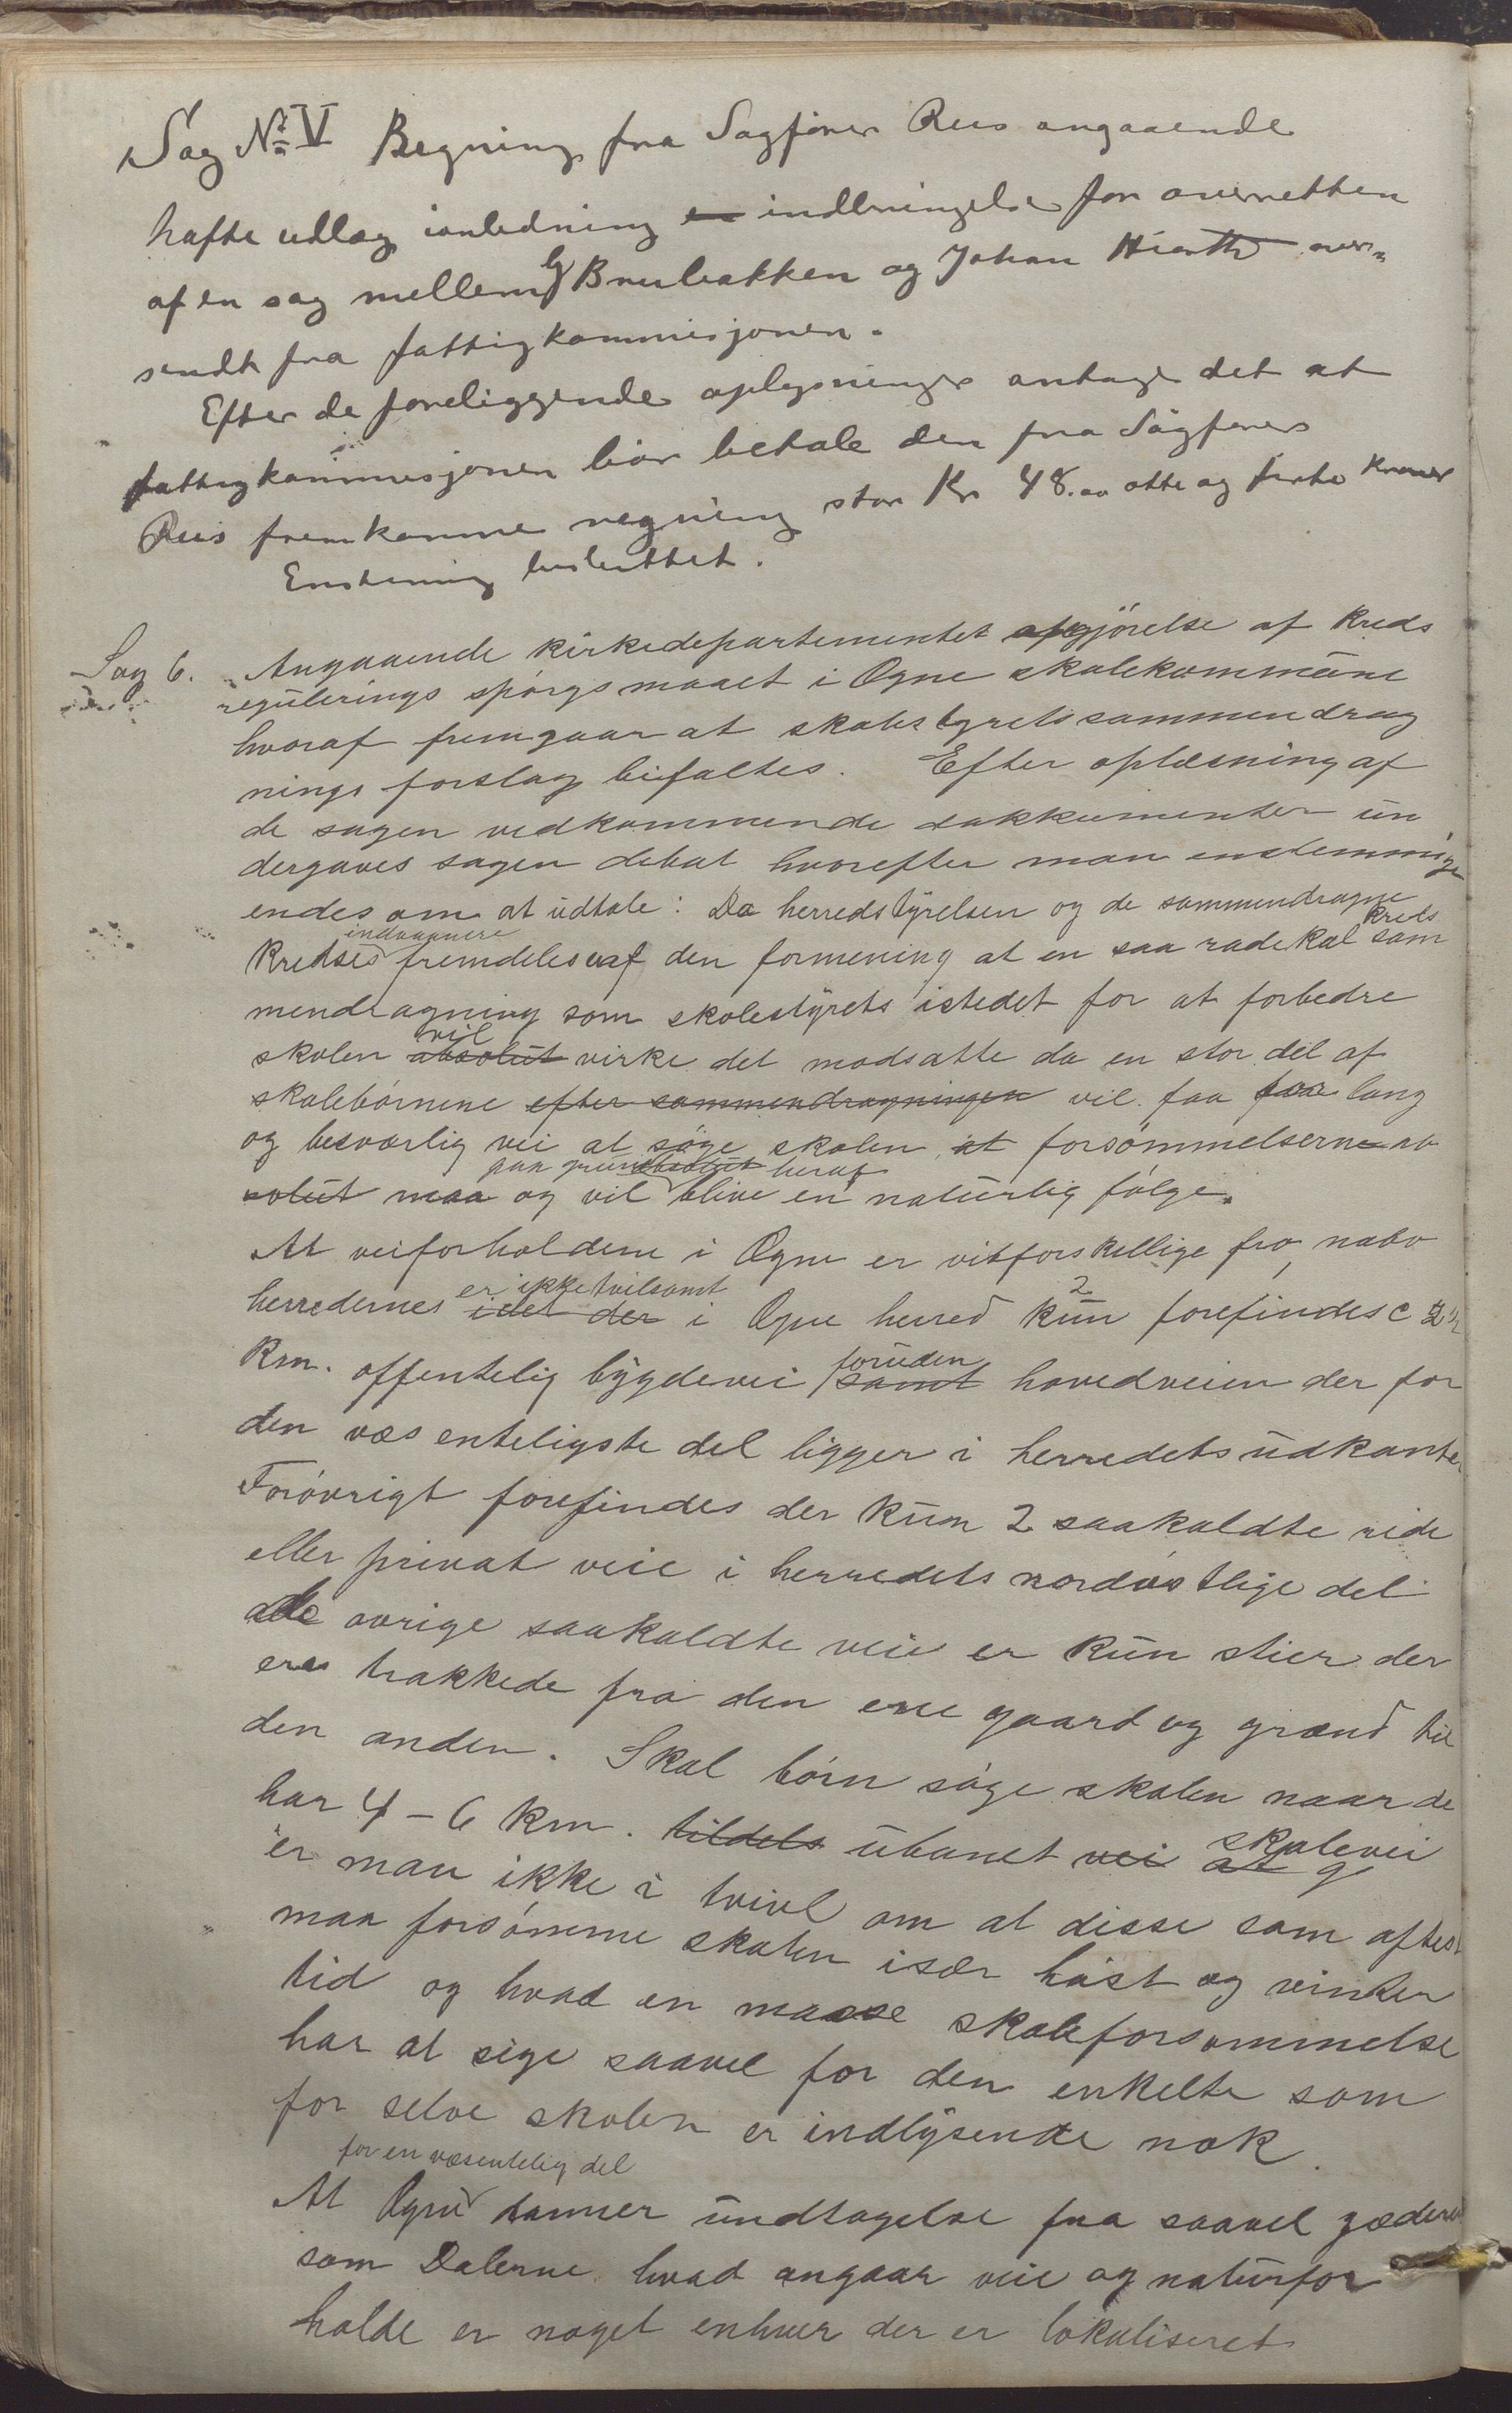 Sag No V Regning fra Sagfører Reis angaaende
hafte udlæg ianledning indbringelse for overretten
af en sag mellem Bruhakken og Johan Hiorth over-
sendt fra fattigkommisjonen.
Efter de foreliggende oplysninger antages det at
fattigkommisjonen bør betale den fra Sagfører
Reis fremkomne regning stor Kr 48.00 otte og førte kroner
Enstemig besluttet.
Sag 6. Angaaende kirkedepartementet afgjørelse af kreds
regulerings spørgsmaalet i Ogne skolekommune
hvoraf fremgaar at skolestyrets sammendrag
nings forslag bifaltes. Efter oplæsning af
de sagen vedkommende dokkumenter un
dergaves sagen debat hvorefter man enstemmige
endes om at udtale: Da herredstyrelsen og de sammendragne
indvaanere kreds
kredse fremdeles er af den formening at en saa radekal sam
mendragning som skolestyrets istedet for at forbedre
vil
skolen absolut virke det modsatte da en stor del af
skolebørnene efter sammendragningen vil faa faar lang
og besværlig vei at søge skolen, at forsømmelserne ab
paa grund absolut heraf
solut maa og vil blive en naturlig følge.
At veiforholdene i Ogne er vidforskellige fra nabo
er ikke tvilsomt 2
herredernes idet der i Ogne herred kun forefindes c 2½
foruden
km. offentelig bygdevei samt hovedveien der for
den væsenteligste del ligger i herredets udkanter
Forøvrigt forefindes der kun 2 saakaldte ride
eller privat veie i herredets nordøstlige del
alle øvrige saakaldte veie er kun stier der
er trakkede fra den ene gaard og grænd til
den anden. Skal børn søge skolen naar de
har 4 - 6 km. tildels ubanet vei at skolevei
er man ikke i tvivl om at disse som oftest
maa forsømme skolen især høst og vinter
tid og hvad en masse skoleforsømmelse
har at sige saavel for den enkelte som
for selve skolen er indlysende nok.
for en væsentelig del
At Ogne danner undtagelse fra saavel Jæderen
som Dalerne hvad angaar veie og naturfor
holde er noget enhver der er lokaliseret